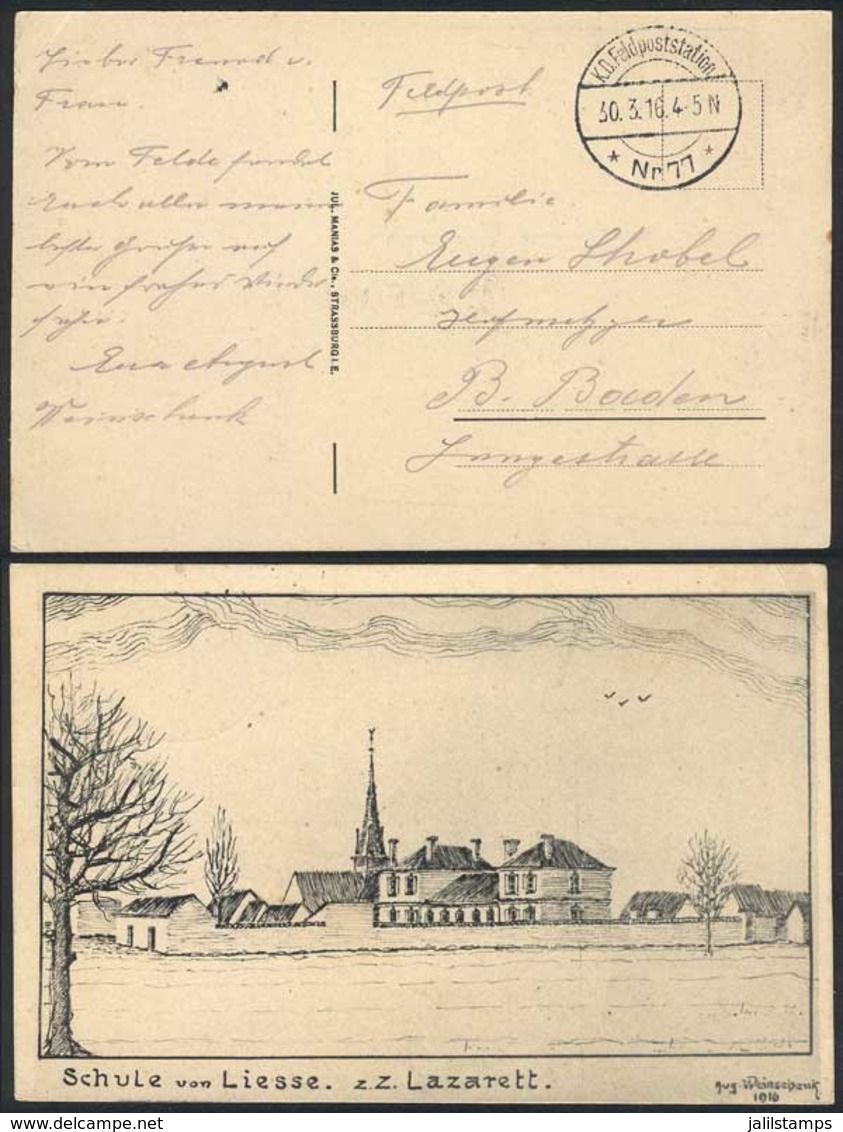 Lieber Freund u.
Frau.
Vom Felde sendet
Euch allen meine
besten Grüsse auf
ein frohes Wieder
sehn.
Euer August
Weinschenk
JUL. MANIAS & Cie., STRASSBURG I. E.
Feldpost
K.D. Feldpoststation
30. 3. 16. 4-5 N
* Nr 77 *
Familie
Eugen Strobel
Hofmetzger
B. Baden
Langestrasse
Schule von Liesse. z.Z. Lazarett.
Aug. Weinschenk
1916
jalilstamps